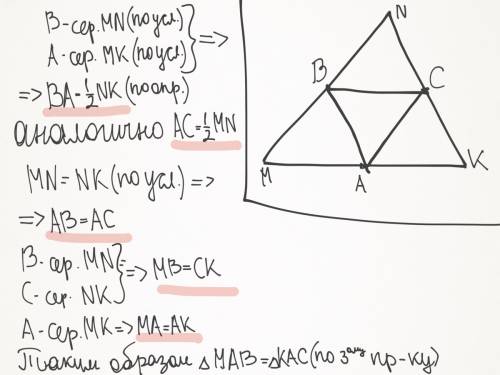 B-сер. MN (по усл.)
A-сер. MK (по усл.) } =>
=> BA = 1/2 NK (по опр.)
аналогично AC = 1/2 MN
MN = NK (по усл.) =>
=> AB = AC
B-сер. MN
C-сер. NK } => MB = CK
A-сер. MK => MA = AK
Таким образом △MAB = △KAC (по 3ему пр-ку)
N
B
C
M
A
K